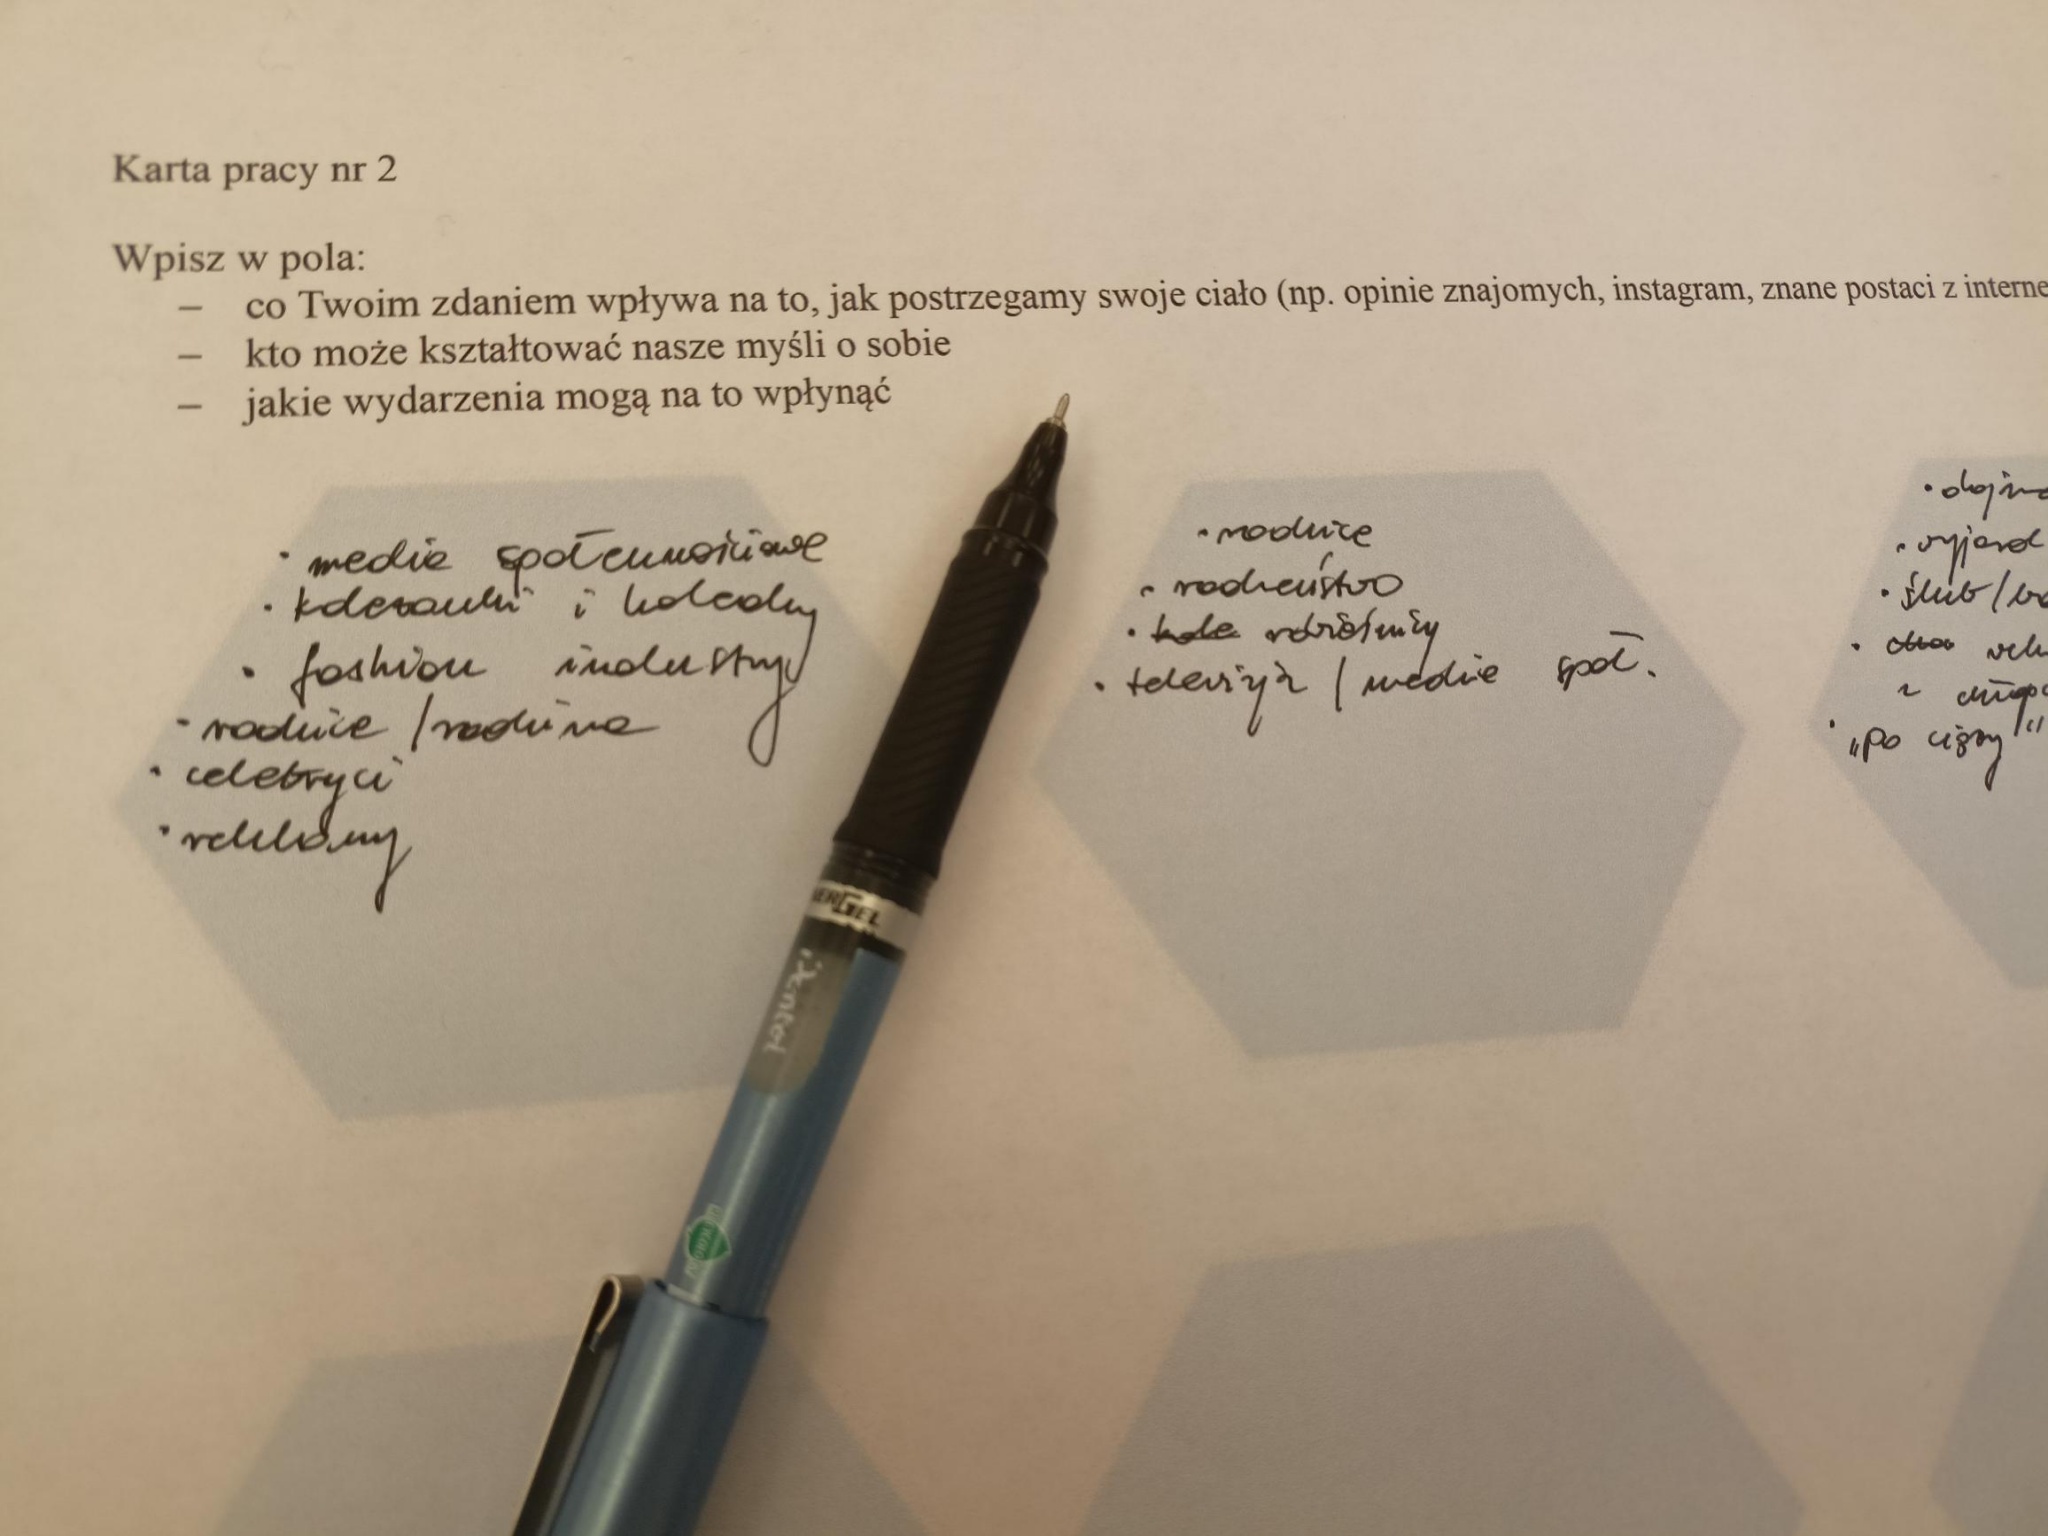 Karta pracy nr 2
Wpisz w pola:
– co Twoim zdaniem wpływa na to, jak postrzegamy swoje ciało (np. opinie znajomych, instagram, znane postaci z interne
– kto może kształtować nasze myśli o sobie
– jakie wydarzenia mogą na to wpłynąć
• media społecznościowe
• koleżanki i koledzy
• fashion industry
• rodzice / rodzina
• celebryci
• reklamy
• rodzice
• rodzeństwo
• rówieśnicy
• telewizja / media społ.
• dojrz
• wyjazd
• ślub /
„Po ciąży"
Pentel